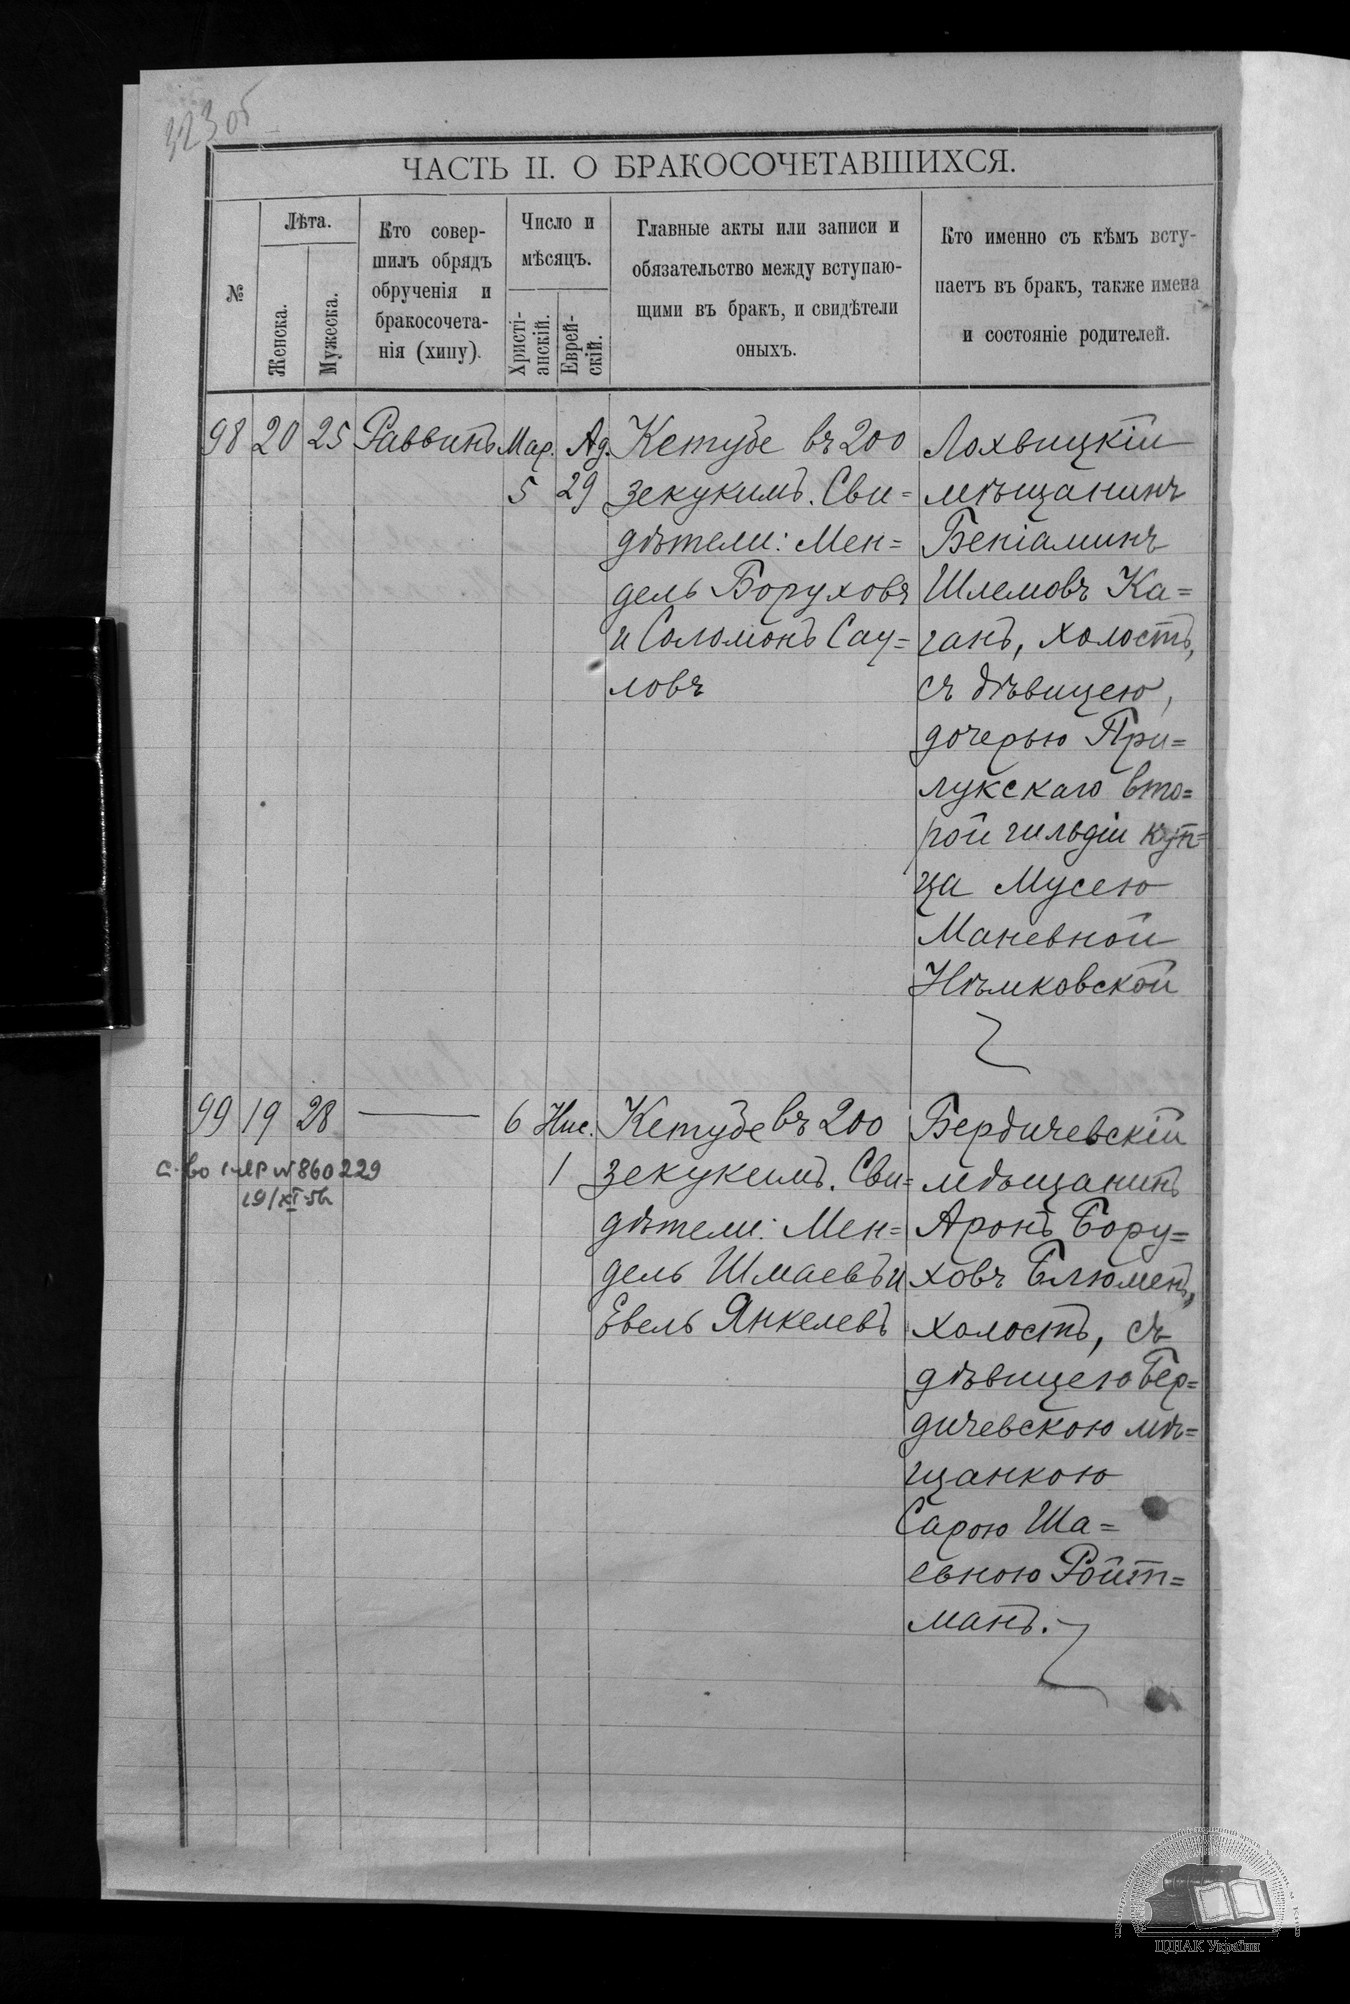 323 об
ЧАСТЬ II. О БРАКОСОЧЕТАВШИХСЯ.
№
Лѣта.
Женска.
Мужеска.
Кто совер-
шилъ обрядъ
обрученія и
бракосочета-
нія (хипу).
Число и
мѣсяцъ.
Христі-
анскій.
Еврей-
скій.
Главные акты или записи и
обязательство между вступаю-
щими въ бракъ, и свидѣтели
оныхъ.
Кто именно съ кѣмъ всту-
паетъ въ бракъ, также имена
и состояніе родителей.
98
20
25
Раввинъ
Мар.
5
Ад.
29
Кетубе въ 200
зекукимъ. Сви=
дѣтели: Мен=
дель Боруховъ
и Соломонъ Сау=
ловъ
Лохвицкій
мѣщанинъ
Беніаминъ
Шлемовъ Ка=
ганъ, холостъ,
съ дѣвицею,
дочерью При=
лукскаго вто=
рой гильдіи куп=
ца Мусею
Маневной
Нѣмковской
99
19
28
6
Нис.
1
Кетубе въ 200
зекукимъ. Сви=
дѣтели: Мен=
дель Шмаевъ и
Евель Янкелевъ
Бердичевскій
мѣщанинъ
Аронъ Бору=
ховъ Блюмен,
холостъ, съ
дѣвицею Бер=
дичевскою мѣ=
щанкою
Сарою Ша=
евною Ройт=
манъ.
с-во I-МР № 860229
19/XI-51
ЦДІАК України